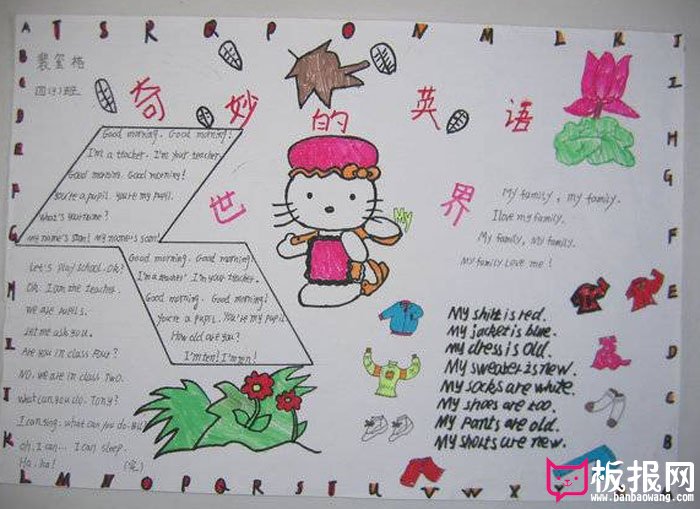 A T S R Q P O N M L K J
奇妙的英语
世界
四(3)班
Good morning. Good morning!
I'm a teacher. I'm your teacher.
Good morning. Good morning!
You're a pupil. You're my pupil.
What's your name?
My name's Sam! My name's Sam!
Good morning. Good morning
I'm a teacher. I'm your teacher.
Good morning. Good morning!
You're a pupil. You're my pupil
How old are you?
I'm ten! I'm ten!
Let's play school. Oh!
Oh. I am the teacher.
We are pupils.
Let me ask you.
Are you in class four?
NO. we are in class Two.
what can you do. Tony?
I can sing. what can you do
oh. I can... I can sleep.
Ha. ha!
(完)
My
My family, my family.
I love my family.
My family, My family.
My family Love me!
My shirt is red.
My jacket is blue.
My dress is old.
My sweater is new.
My socks are white.
My shoes are too.
My pants are old.
My shorts are new.
板报网
www.banbaowang.com